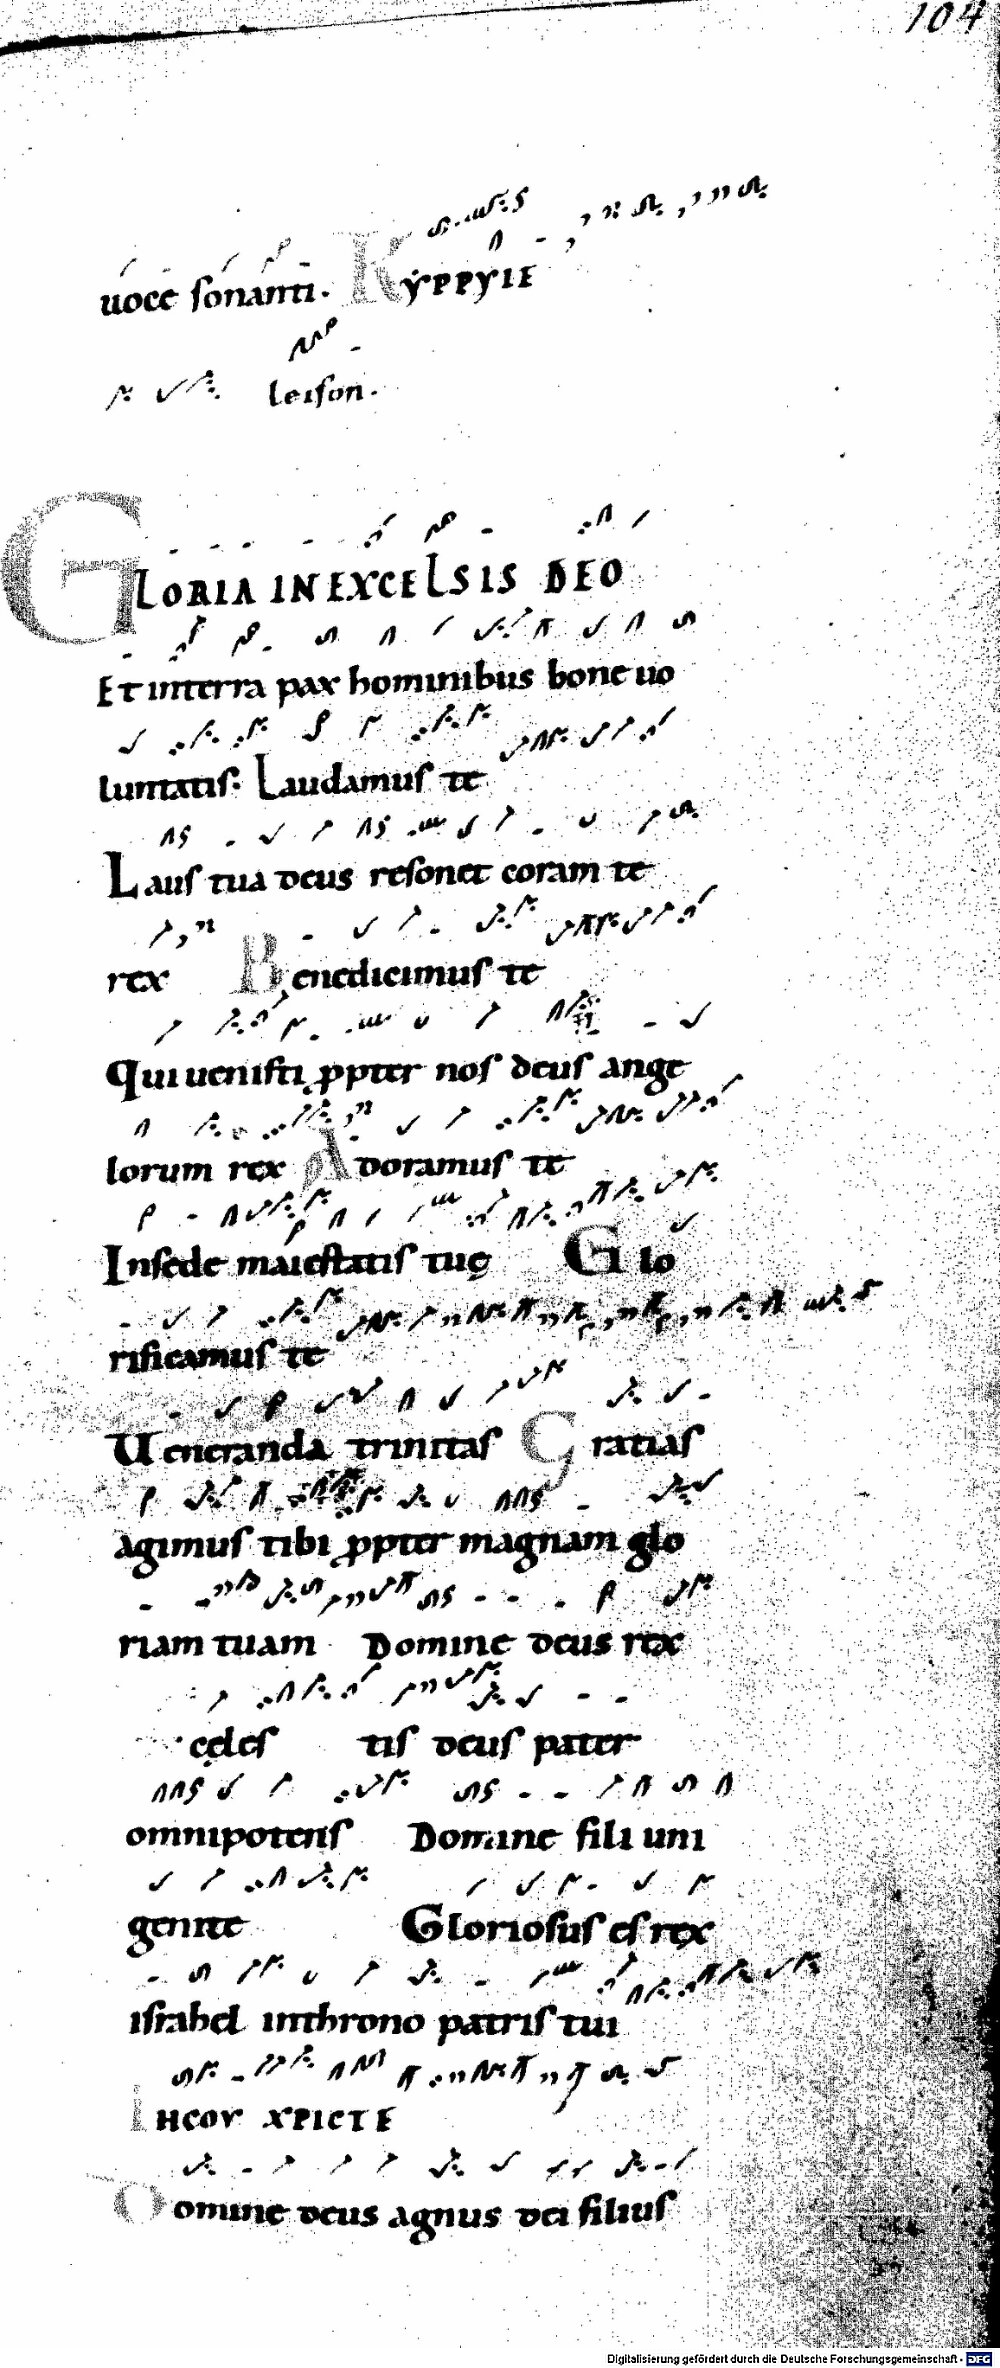 104
uoce sonanti. KYPPYIE
leison.
GLORIA IN EXCELSIS DEO
Et interra pax hominibus bone uo
luntatis. Laudamus te
Laus tua deus resonet coram te
rex Benedicimus te
Qui uenisti ppter nos deus ange
lorum rex Adoramus te
Insede maiestatis tuę Glo
rificamus te
Ueneranda trinitas Gratias
agimus tibi ppter magnam glo
riam tuam Domine deus rex
cęles tis deus pater
omnipotens Domine fili uni
genite Gloriosus es rex
israhel inthrono patris tui
IHCOY XPICTE
Domine deus agnus dei filius
Digitalisierung gefördert durch die Deutsche Forschungsgemeinschaft - DFG